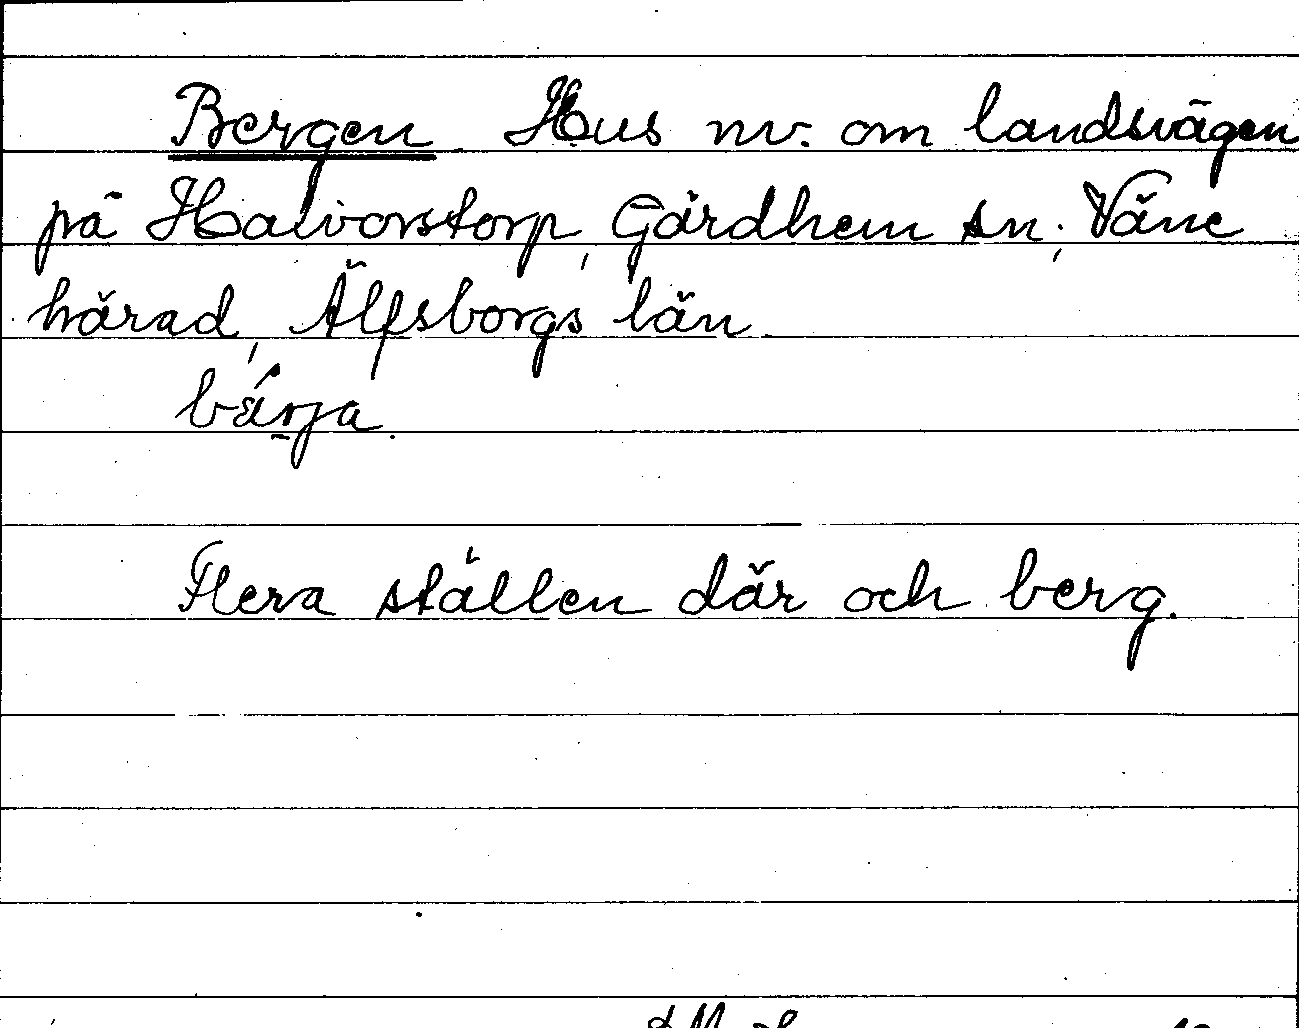 Bergen Hus nv. om landsvägen
på Halvorstorp, Gärdhem sn., Väne
härad, Älfsborgs län
bärja.
Flera ställen där och berg.